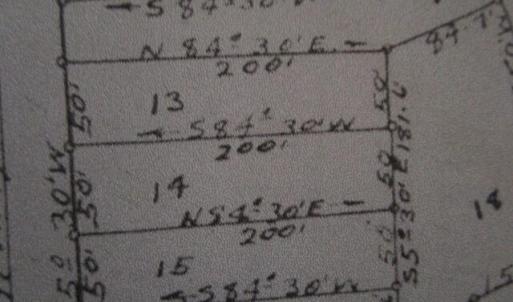 S 84° 30' W
N 84° 30' E
200'
84.73
50'
13
50'
S 84° 30' W
200'
181.6'
50'
14
50'
N 84° 30' E
200'
18
30' W
50'
15
50'
S 5° 30' E
S 84° 30' W
5°
15